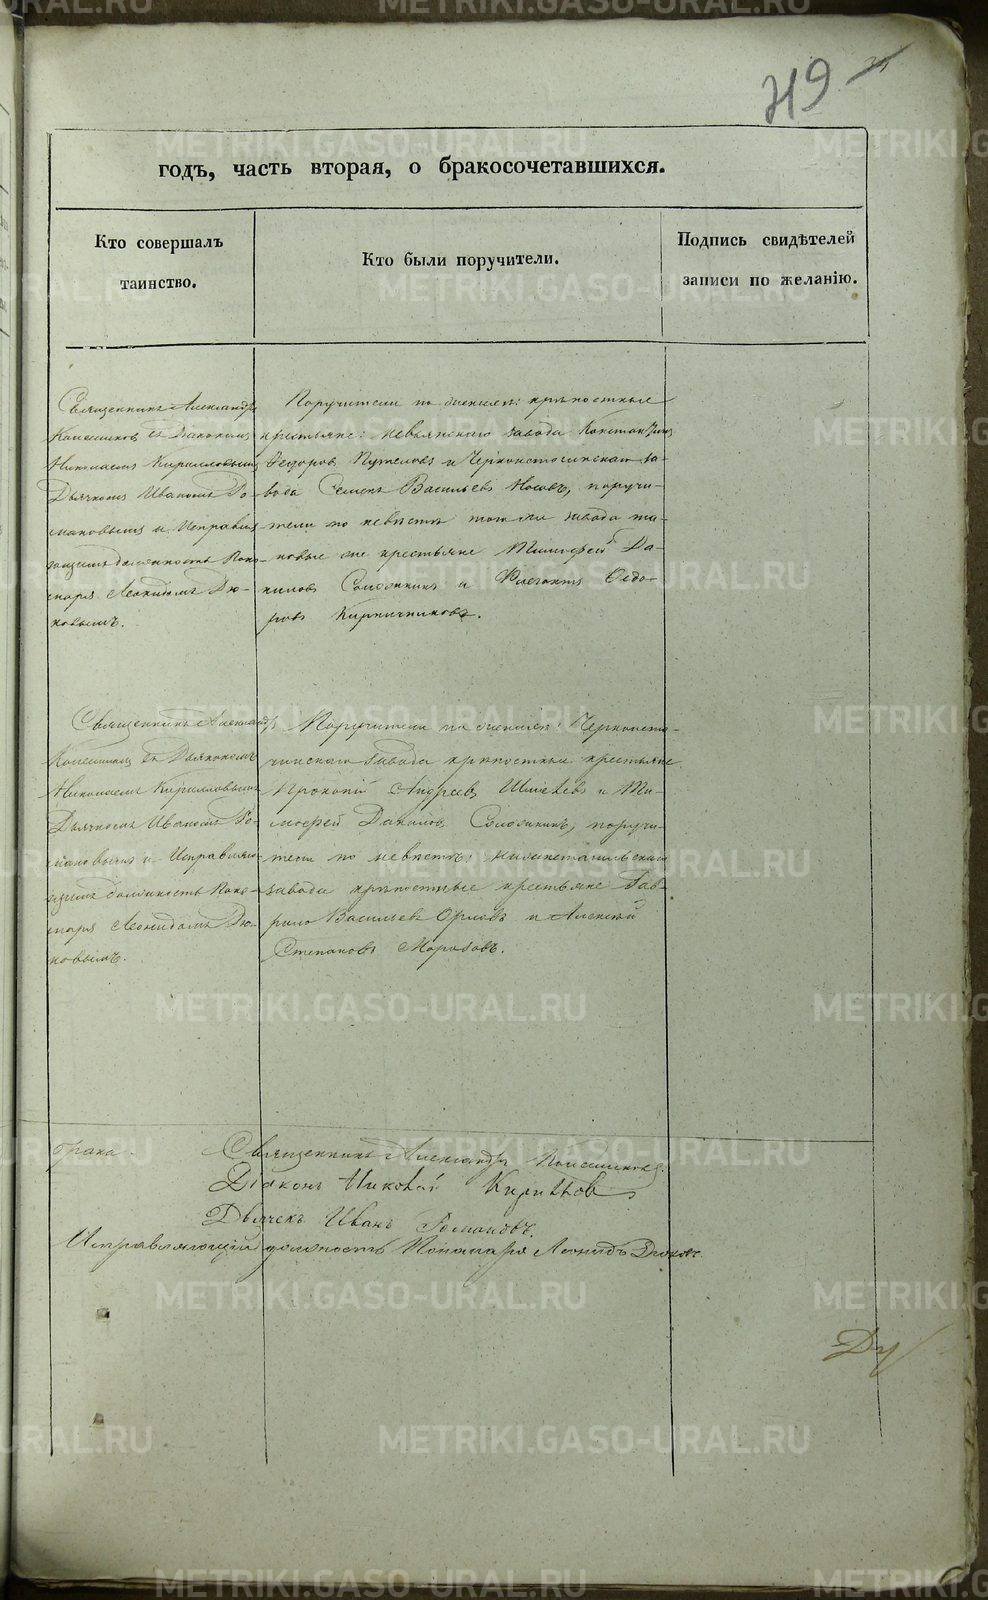 годъ, часть вторая, о бракосочетавшихся.
Кто совершалъ
таинство.
Кто были поручители.
Подпись свидѣтелей
записи по желанію.
Священникъ Александръ
съ Діакономъ
Николаемъ Кирилловымъ
Дьячкомъ Иваномъ Ро-
мановымъ и Исправля-
ющимъ должность Поно-
маря Леонидомъ Дю-
ковымъ.
Поручители по женихѣ: крѣпостные
крестьяне: Невьянскаго завода Константинъ
Федоровъ и Черноисточинскаго за-
вода Семенъ Васильевъ Носовъ, поручи-
тели по невѣстѣ того же завода та-
ковые же крестьяне Тимофей Да-
ниловъ Солодкинъ и Федо-
ровъ Кирпичниковъ.
Священникъ Александръ
съ Дьякономъ
Николаемъ Кирилловымъ
Дьячкомъ Иваномъ Ро-
мановымъ и Исправляю-
щимъ должность Поно-
маря Леонидомъ Дю-
ковымъ.
Поручители по женихѣ: Черноисто-
чинскаго завода крѣпостные крестьяне
Прокопій Андреевъ и Ти-
мофей Даниловъ Солодкинъ, поручи-
тели по невѣстѣ: Нижнетагильскаго
завода крѣпостные крестьяне Гав-
рило Васильевъ Орловъ и Алексѣй
Степановъ Морозовъ.
брака.
Священникъ Александръ
Діаконъ Николай Кирилловъ
Дьячекъ Иванъ Романовъ.
Исправляющій должность Пономаря Леонидъ Дюковъ.
METRIKI.GASO-URAL.RU